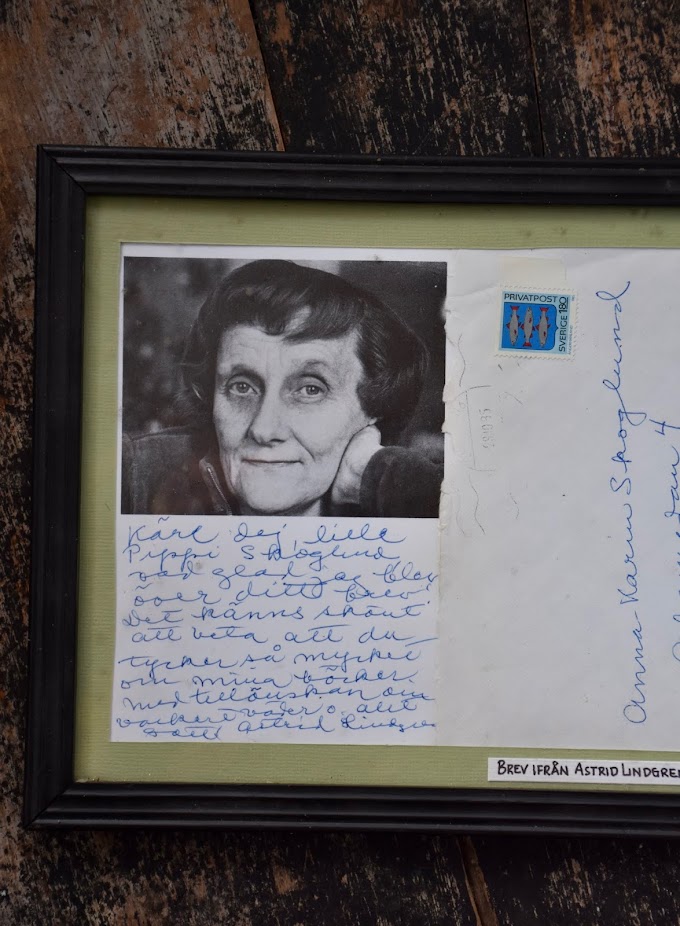 Käre dej lille
Pippi Skoglund
vad glad jag blev
över ditt brev!
Det känns skönt
att veta att du
tycker så mycket
om mina böcker.
med tillönskan om
vackert väder o. allt
gott Astrid Lindgren
PRIVATPOST
SVERIGE 180
Anna-Karin Skoglund
4
BREV IFRÅN ASTRID LINDGREN